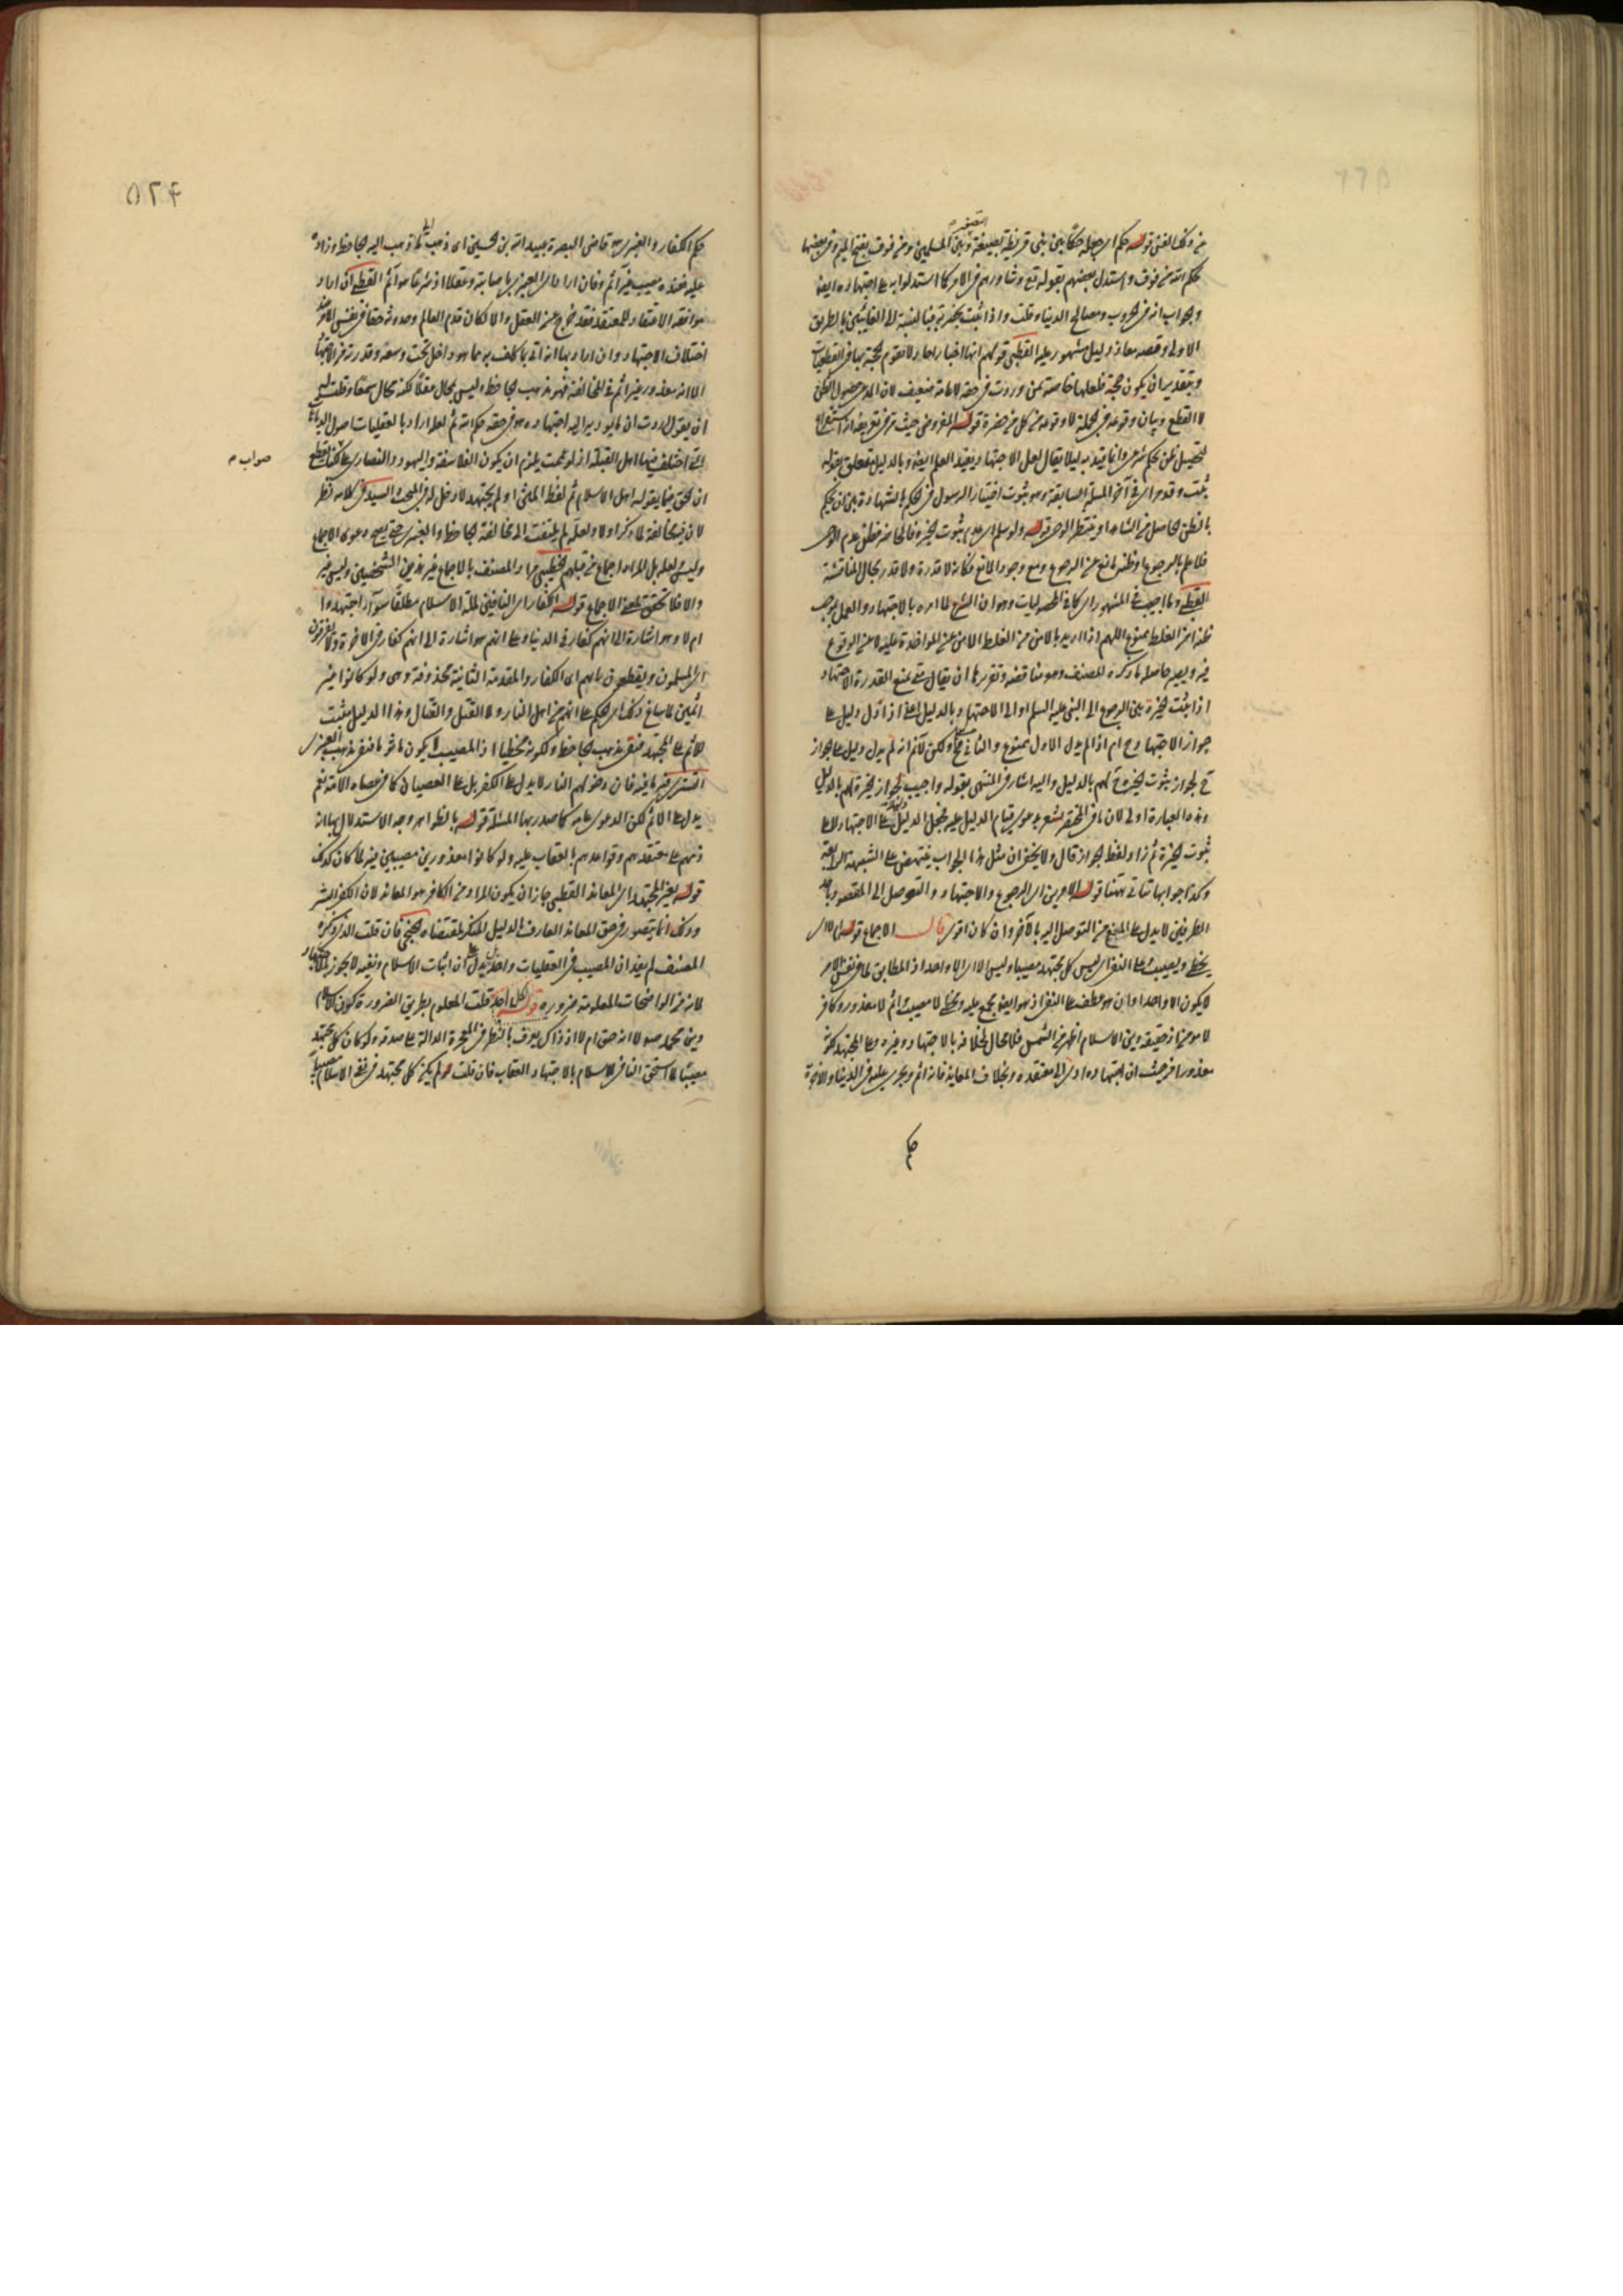 من ذلك الفن قوله حكم اى جعله حكما بين بنى قريظة وبين المسلمين ومن فوق بفتح الميم وفى بعضها
بحكم الله من فوق واستدل بعضهم بقوله تع وشاورهم فى الامر كما استدلوا به على اجتهاده ايضا
والجواب انه فى الحروب ومصالح الدنيا وقلت واذا ثبت بحضرته فبالنسبة الى الغائبين بالطريق
الاولى وقصة معاذ دليل مشهور عليه القطبى قولهم انها اخبار احاد لا تقوم الحجة بها فى القطعيات
وبتقدير ان يكون حجة فلعلها خاصة بمن وردت فى حقه لا عامة ضعيف لان المدعى حصول الظن
لا القطع وبيان وقوعه فى الجملة لا وقوعه من كل من حضره قوله لغو ومن حيث عرف تعريفه انه استفراغ
لتحصيل ظن بحكم شرعى وانما قيد به ليلا يقال لعل الاجتهاد يفيد العلم ايضا وبالدليل متعلق بقوله
يثبت وقد مر اى فى آخر المسئلة السابقة وهو ثبوت اختيار الرسول فى الحكم بالشهادة بين ان يحكم
بالظن الحاصل من الشاهد او ينتظر الوحى قوله ولو سلم اى عدم ثبوت الخيرة فالحاضر يظن عدم الوحى
فلا علم بالرجوع او ظنه مانع عن الرجوع ومع وجود المانع فكانه لا قدرة ولا قدر بحال المناقشة
القطبى وما اجيب فى المشهور اى كما فى المحصوليات وهو ان الشرع لما امره بالاجتهاد والعمل بموجب
ظنه امن الغلط ممنوع اللهم اذا اريد بالامن من الغلط الامن من المؤاخذة عليه لا من الوقوع
فيه ويصير حاصل ما ذكره المصنف وهو مناقضة وتقريرها ان يقال متى يمنع القدرة الاجتهاد
اذا ثبت الخيرة بين الرجوع الى النبى عليه السلم او الى الاجتهاد وبالدليل اعنى اذا دل دليل على
جواز الاجتهاد ح ام اذا لم يدل الاول ممنوع والثانى مم ولكن لا نم انه لم يدل دليل على جواز
ح لجواز ثبوت الخيرة ح لهم بالدليل واليه اشار فى المنتهى بقوله واجيب بجواز الخيرة لهم بالدليل
وهذه العبارة اولى لان ما فى المختصر يشعر بدعوى قيام الدليل عليه فحمل الدليل على الاجتهاد لا على
ثبوت الخيرة ثم زاد لفظ الجواز قال ولا يخفى ان مثل هذا الجواب ينتهض على الشبهة الرابعة
وكذا جوابها تتاتى ههنا قوله الامرين اى الرجوع والاجتهاد والتوصل الى المقصود باحد
الطرفين لا يدل على المنع من التوصل اليه بالآخر وان كان اقوى قال الاجماع قوله اما الاى
يخطى ويصيب على النفى اى ليس كل مجتهد مصيبا وليس الا الاى الا واحد اذ المطابق لما فى نفس الامر
لا يكون الا واحدا وان هو عطف على النفى اذ هو ايضا مجمع عليه ومخطئ لا مصيب اثم لا معذور وكافر
لا مؤمن اذ حقيقة دين الاسلام اظهر من الشمس فلا مجال لخلافه بالاجتهاد وغيره وعلى المجتهد كونه
معذورا فى حيث ان اجتهاده ادى الى معتقده وبخلاف المعاند فانه اثم ويجرى عليه فى الدنيا والآخرة
حكم
٥٢٤
حكم الكفار والعنبرى هو قاضى البصرة عبيد الله بن الحسين اى ذهب الى ما ذهب اليه الجاحظ وزاد
عليه فعنده مصيب غير آثم وفان اراد اى العنبرى باصابته وعقلا اذ شرعا هو آثم القطبى ان اراد
موافقة الاعتقاد للمعتقد فقد خرج عن العقل والا لكان قدم العالم وحدوثه حقا فى نفس الامر عند
اختلاف الاجتهاد وان اراد بها انه اتى بما كلف به مما هو داخل تحت وسعه وقدرته من الاجتهاد
الا انه معذور غير اثم فى المخالفة فهو مذهب الجاحظ وليس بمحال عقلا لكنه محال سمعا وقلت له
ان يقول اردت ان ما يودى اليه اجتهاده هو فى حقه حكم الله ثم لعله اراد بالعقليات اصول الديانات
التى اختلف فيها اهل القبلة اذ لو عممت يلزم ان يكون الفلاسفة واليهود والنصارى على
صواب م
ان الحق فيما يقوله اهل الاسلام ثم لفظ المتن او لم يجتهد لا دخل له فى المبحث السيد فى كلامه نظر
لان فيه مخالفة لما ذكر اولا ولعله لم يلتفت الى مخالفة الجاحظ والعنبرى حتى يصح دعوى الاجماع
وليس لعله بل المراد اجماع من قبلهم الخطيبى مراد المصنف بالاجماع غير هذين الشخصين وليس غير
والا فلا تحقق لهذا الاجماع قوله الكفار اى النافين لملة الاسلام مطلقا سواء اجتهدوا
ام لا وهو اشارة الى انهم كفار فى الدنيا وعلى انهم هو اشارة الى انهم كفار فى الاخرة ولا يفرقون
اى المسلمون ويقطعون بانهم اى الكفار والمقدمة الثانية محذوفة وهى ولو كانوا غير
اثمين لما ساغ ذلك اى الحكم على انهم من اهل النار ولا القتل والقتال وهذا الدليل مثبت
للاثم على المجتهد فنفى مذهب الجاحظ ولكونه مخطيا اذ المصيب لا يكون ماثوما فنفى مذهب العنبرى
التسترى فيه ما فيه فان دخولهم النار لا يدل على الكفر بل على العصيان كما فى عصاة الامة نعم
يدل على الاثم لكن الدعوى عامة كما صدر بها المسئلة قوله بالظواهر وجه الاستدلال بها انه
ذمهم على معتقدهم وتواعدهم بالعقاب عليه ولو كانوا معذورين مصيبين فيه لما كان كذلك
قوله بغير المجتهد اى المعاند القطبى جاز ان يكون المراد من الكافر هو المعاند لان الكفر الستر
وذلك انما يتصور فى حق المعاند العارف الدليل المنكر لمقتضاه الخنجى فان قلت الذى ذكره
المصنف لم يفد ان المصيب فى العقليات واحد بل يدل على ان اثبات الاسلام ونفيه لا يجوز بالاجتهاد
لانه من الواضحات المعلومة ضرورة قوله لكل احد قلت المعلوم بطريق الضرورة كون الاسلام
دين محمد صم لا انه حق ام لا اذ ذاك يعرف بالنظر فى المعجزة الدالة على صدقه ولو كان كل مجتهد
مصيبا لما استحق النافى للاسلام بالاجتهاد العقاب فان قلت ولم يكن كل مجتهد فى نفى الاسلام مصيبا